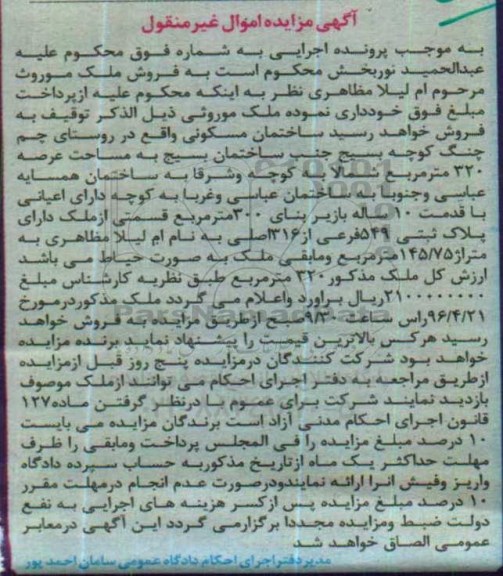 آگهی مزایده اموال غیر منقول
به موجب پرونده اجرایی به شماره فوق محکوم علیه
عبدالحمید نوربخش محکوم است به فروش ملک موروث
مرحوم ام لیلا مظاهری نظر به اینکه محکوم علیه ازپرداخت
مبلغ فوق خودداری نموده ملک موروثی ذیل الذکر توقیف به
فروش خواهد رسید ساختمان مسکونی واقع در روستای چم
چنگ کوچه بسیج جنب ساختمان بسیج به مساحت عرصه
۳۲۰ مترمربع شمالا به کوچه وشرقا به ساختمان همسایه
عباسی وجنوبا به ساختمان عباسی وغربا به کوچه دارای اعیانی
با قدمت ۱۰ساله بازیر بنای ۳۰۰مترمربع قسمتی ازملک دارای
پلاک ثبتی ۵۴۹فرعی از۳۱۶اصلی به نام ام لیلا مظاهری به
متراژ۱۴۵/۷۵مترمربع ومابقی ملک به صورت حیاط می باشد
ارزش کل ملک مذکور۳۲۰ مترمربع طبق نظریه کارشناس مبلغ
۲۱۰۰۰۰۰۰۰۰ریال براورد واعلام می گردد ملک مذکوردرمورخ
۹۶/۴/۲۱راس ساعت ۹/۳۰صبح ازطریق مزایده به فروش خواهد
رسید هرکس بالاترین قیمت را پیشنهاد نماید برنده مزایده
خواهد بود شرکت کنندگان درمزایده پنج روز قبل ازمزایده
ازطریق مراجعه به دفتر اجرای احکام می توانند ازملک موصوف
بازدید نمایند شرکت برای عموم با درنظر گرفتن ماده۱۲۷
قانون اجرای احکام مدنی آزاد است برندگان مزایده می بایست
۱۰ درصد مبلغ مزایده را فی المجلس پرداخت ومابقی را ظرف
مهلت حداکثر یک ماه ازتاریخ مذکوربه حساب سپرده دادگاه
واریز وفیش انرا ارائه نمایندودرصورت عدم انجام درمهلت مقرر
۱۰ درصد مبلغ مزایده پس ازکسر هزینه های اجرایی به نفع
دولت ضبط ومزایده مجددا برگزارمی گردد این آگهی درمعابر
عمومی الصاق خواهد شد
مدیردفتراجرای احکام دادگاه عمومی سامان احمد پور